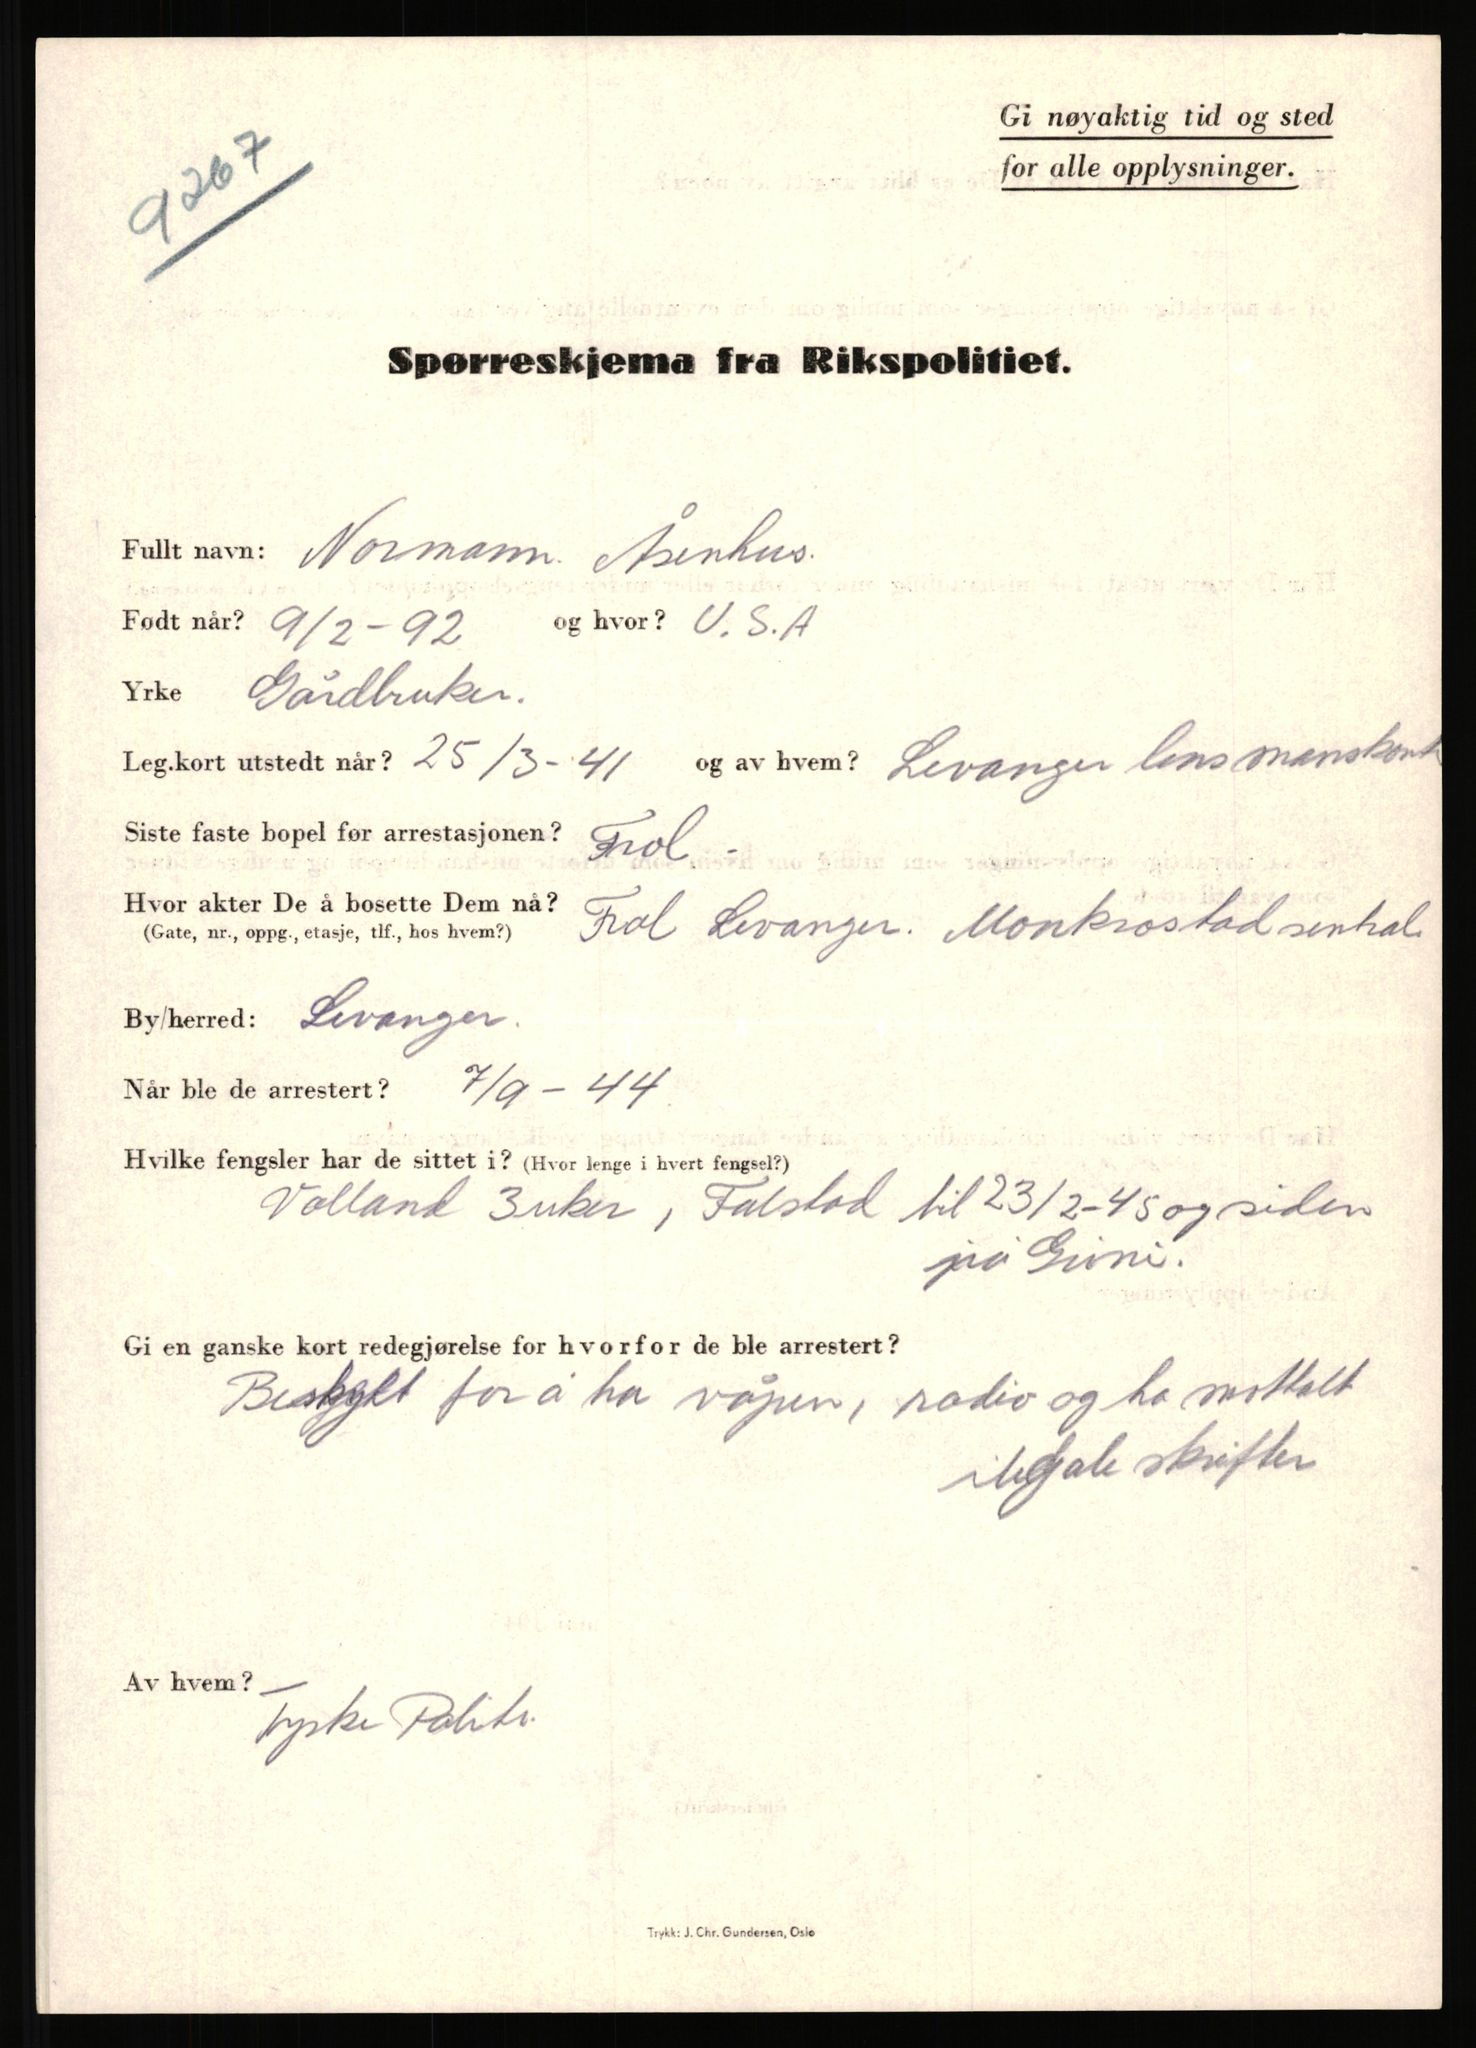 Gi nøyaktig tid og sted
for alle opplysninger.
9267
Spørreskjema fra Rikspolitiet.
Fullt navn: Normann Åsenhus.
Født når? 9/2-92 og hvor? U.S.A
Yrke Gårdbruker.
Leg.kort utstedt når? 25/3-41 og av hvem? Levanger lensmanskont
Siste faste bopel før arrestasjonen? Frol -
Hvor akter De å bosette Dem nå? Frol Levanger. Monkrostad sentral.
(Gate, nr., oppg., etasje, tlf., hos hvem?)
By/herred: Levanger.
Når ble de arrestert? 7/9-44
Hvilke fengsler har de sittet i? (Hvor lenge i hvert fengsel?)
Volland 3 uker, Falstad til 23/2-45 og siden
på Grini.
Gi en ganske kort redegjørelse for hvorfor de ble arrestert?
Beskylt for å ha våpen, radio og ha mottatt
ilegale skrifter
Av hvem?
Tyske Politi.
Trykk: J. Chr. Gundersen, Oslo